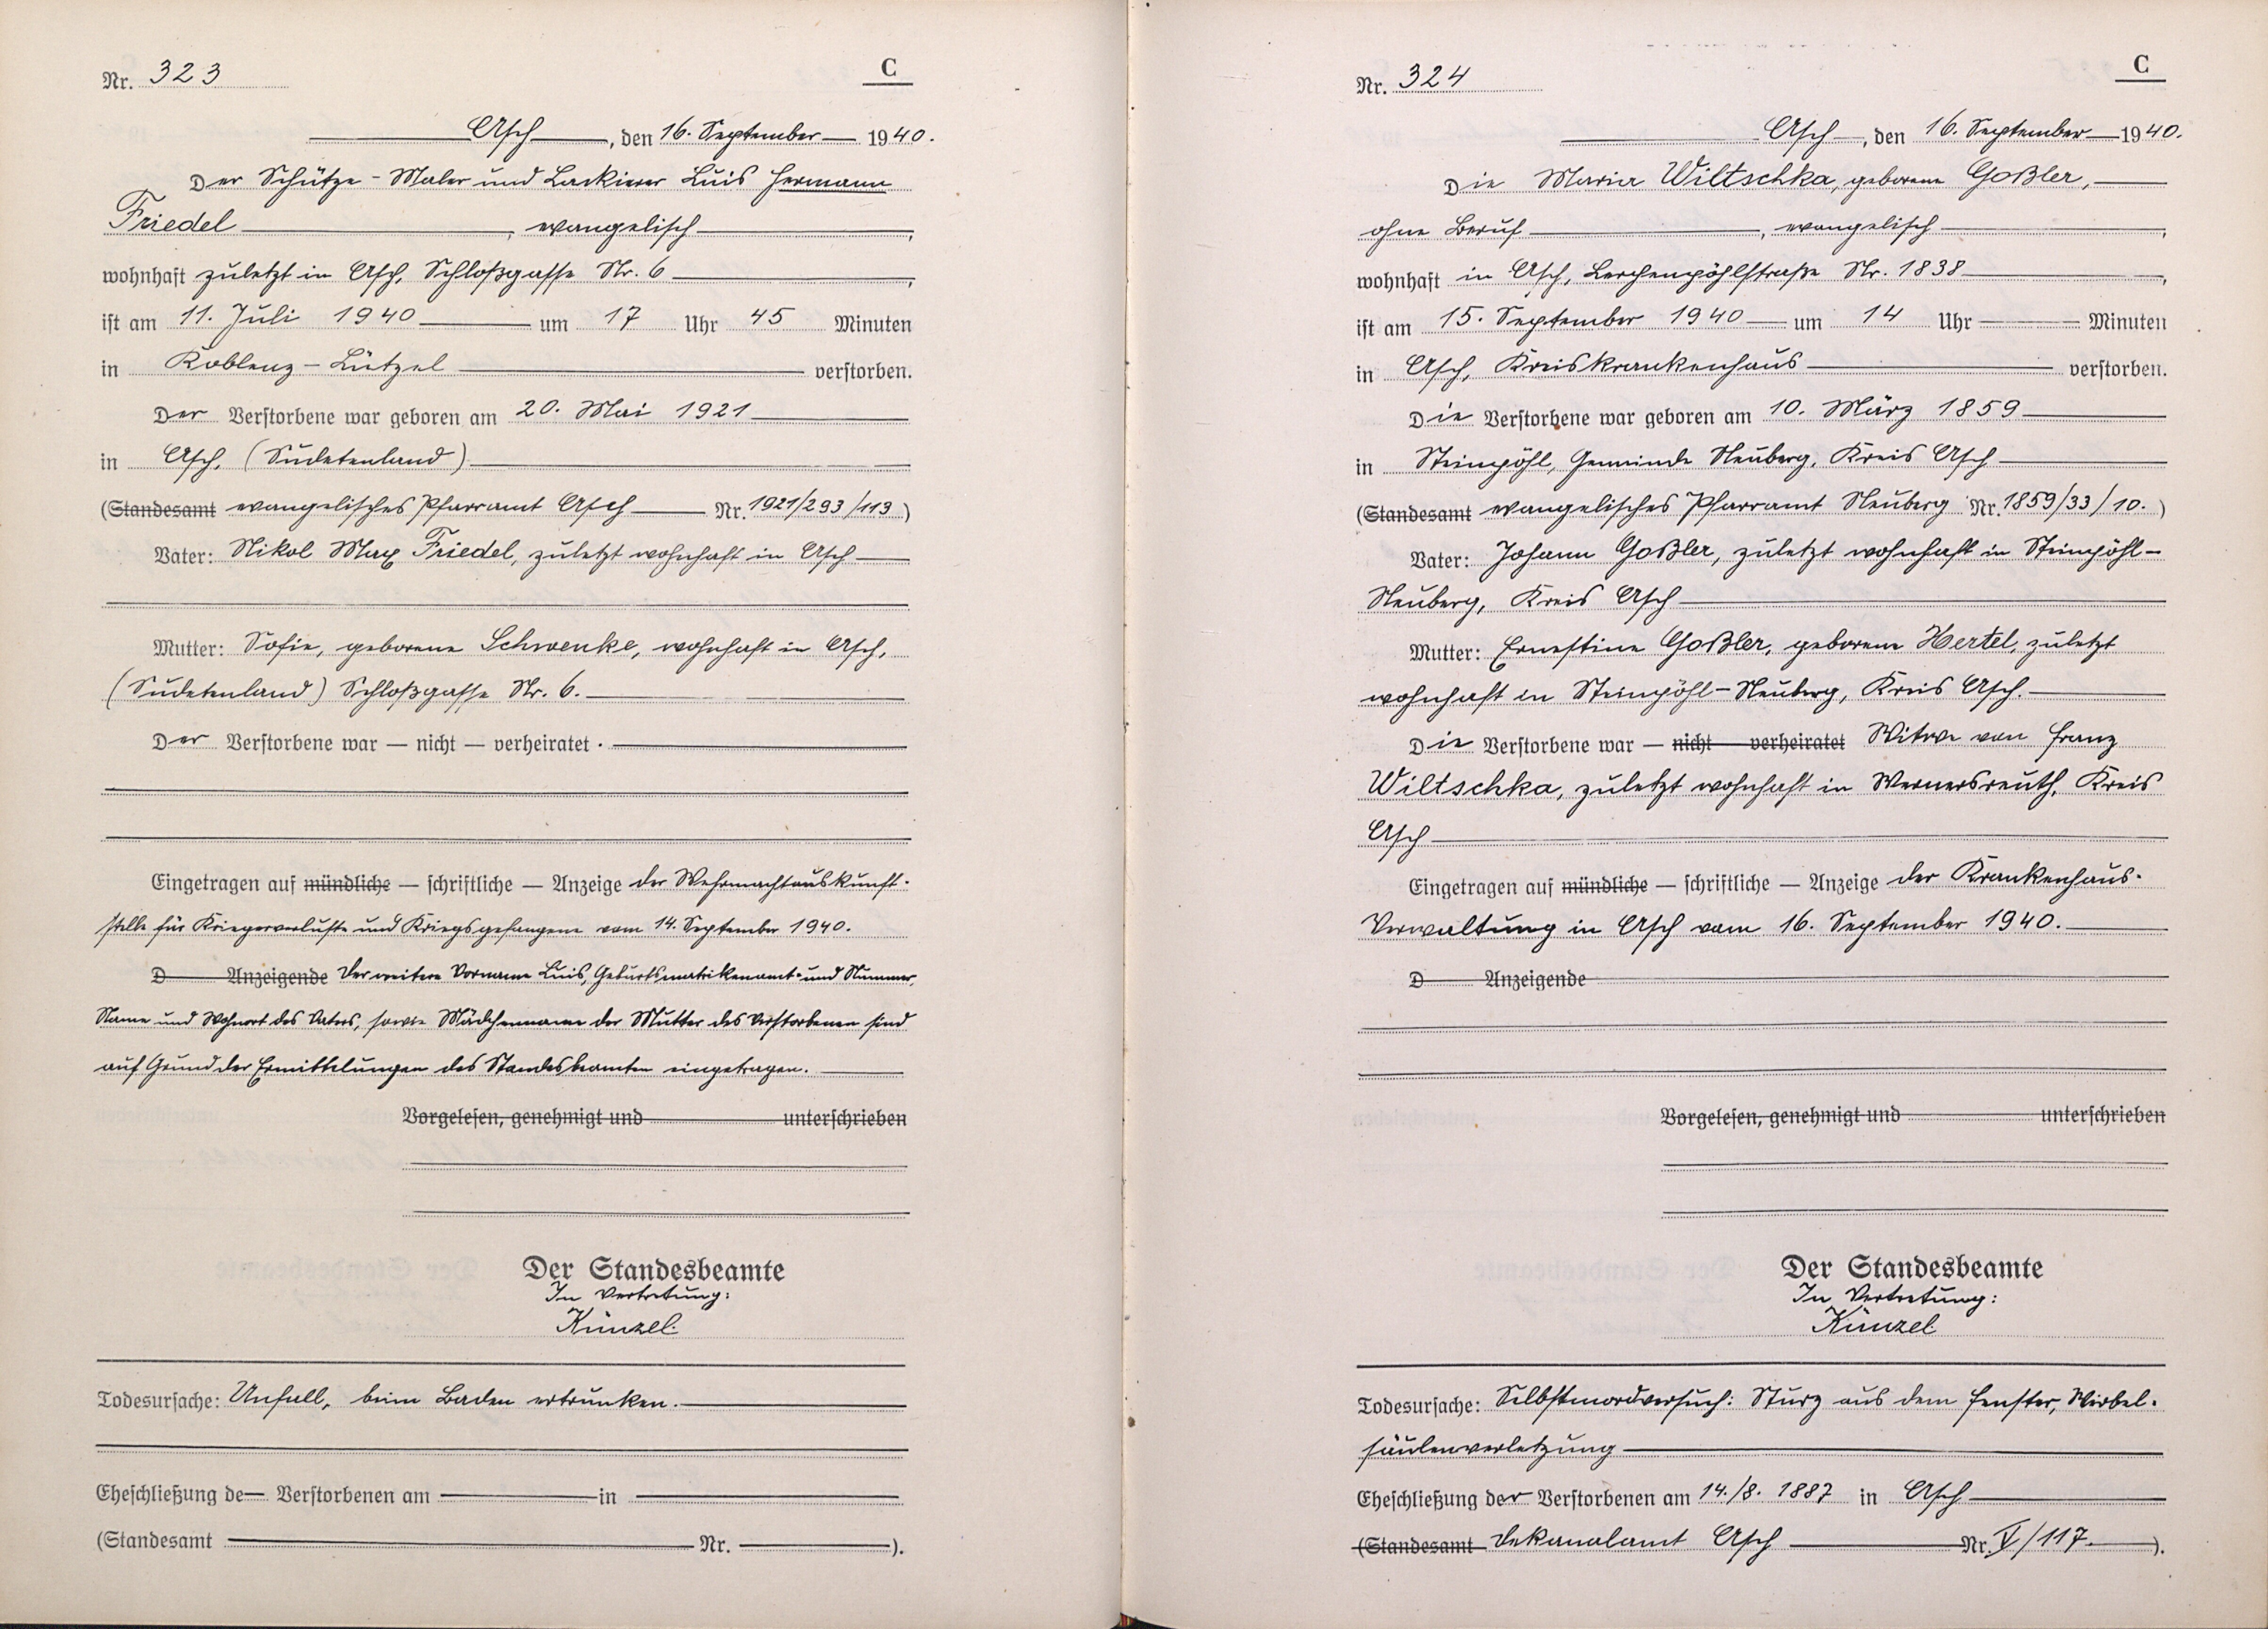 Nr. 323
C
Asch, den 16. September 1940.
Der Schütze - Maler und Lackierer Luis Hermann
Friedel, evangelisch,
wohnhaft zuletzt in Asch, Schloßgasse Nr. 6,
ist am 11. Juli 1940 um 17 Uhr 45 Minuten
in Koblenz - Lützel verstorben.
Der Verstorbene war geboren am 20. Mai 1921
in Asch, (Sudetenland)
(Standesamt evangelisches Pfarramt Asch Nr. 1921/293/113)
Vater: Nikol Max Friedel, zuletzt wohnhaft in Asch
Mutter: Sofie, geborene Schwenke, wohnhaft in Asch,
(Sudetenland) Schloßgasse Nr. 6.
Der Verstorbene war — nicht — verheiratet.
Eingetragen auf mündliche — schriftliche — Anzeige der Wehrmachtauskunft-
stelle für Kriegerverluste und Kriegsgefangene vom 14. September 1940.
D Anzeigende Der weitere Vorname Luis, Geburtsmatrikenamt und Nummer,
Name und Wohnort des Vaters, sowie Mädchenname der Mutter des Verstorbenen sind
auf Grund der Ermittelungen des Standesbeamten eingetragen.
Vorgelesen, genehmigt und unterschrieben
Der Standesbeamte
In Vertretung:
Künzel.
Todesursache: Unfall, beim Baden ertrunken.
Eheschließung de Verstorbenen am in
(Standesamt Nr. ).
Nr. 324
C
Asch, den 16. September 1940.
Die Maria Wiltschka, geborene Goßler,
ohne Beruf, evangelisch,
wohnhaft in Asch, Lerchenpöhlstraße Nr. 1838,
ist am 15. September 1940 um 14 Uhr Minuten
in Asch, Kreiskrankenhaus verstorben.
Die Verstorbene war geboren am 10. März 1859
in Steinpöhl, Gemeinde Neuberg, Kreis Asch
(Standesamt evangelisches Pfarramt Neuberg Nr. 1859/33/10.)
Vater: Johann Goßler, zuletzt wohnhaft in Steinpöhl-
Neuberg, Kreis Asch
Mutter: Ernestine Goßler, geborene Hertel, zuletzt
wohnhaft in Steinpöhl-Neuberg, Kreis Asch.
Die Verstorbene war — nicht — verheiratet Witwe von Franz
Wiltschka, zuletzt wohnhaft in Wernersreuth, Kreis
Asch
Eingetragen auf mündliche — schriftliche — Anzeige der Krankenhaus-
Verwaltung in Asch vom 16. September 1940.
D Anzeigende
Vorgelesen, genehmigt und unterschrieben
Der Standesbeamte
In Vertretung:
Künzel
Todesursache: Selbstmordversuch: Sturz aus dem Fenster, Wirbel-
säulenverletzung
Eheschließung der Verstorbenen am 14./8. 1887 in Asch
(Standesamt Dekanalamt Asch Nr. V/117.).